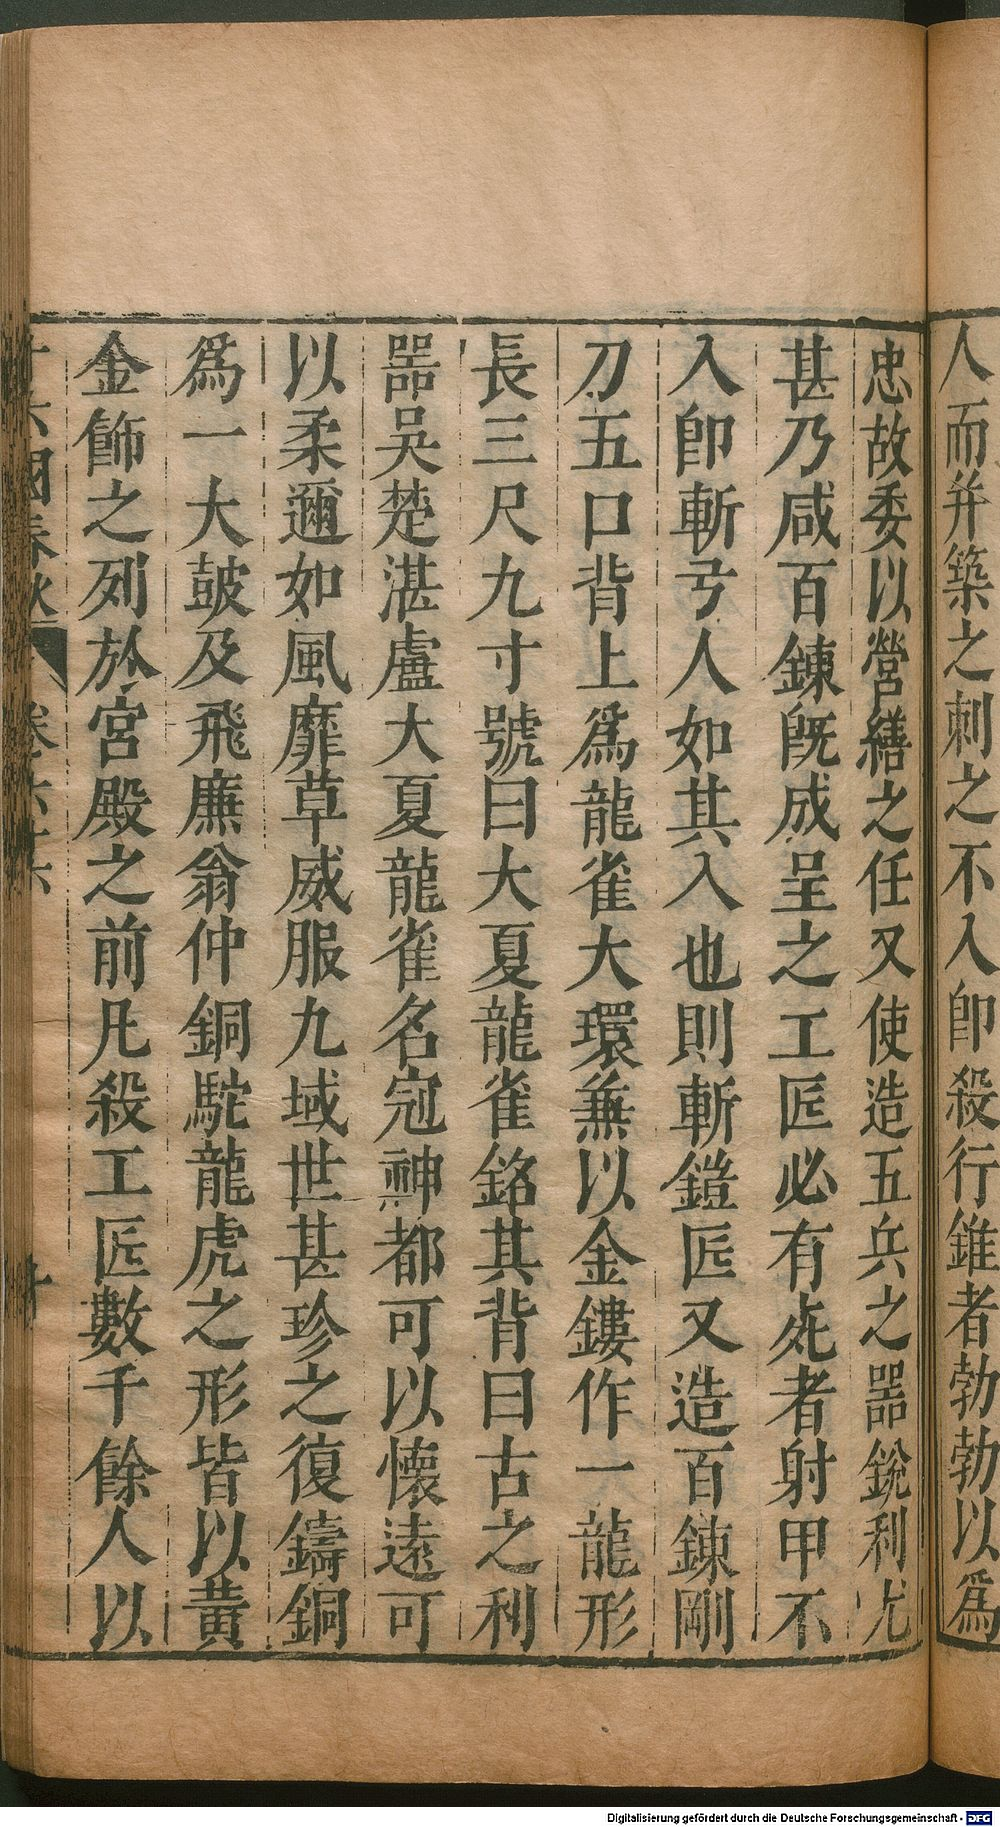 人而并築之刺之不入卽殺行錐者勃勃以爲
忠故委以營繕之任又使造五兵之器銳利尤
甚乃咸百鍊旣成呈之工匠必有死者射甲不
入卽斬弓人如其入也則斬鎧匠又造百鍊剛
刀五口背上爲龍雀大環兼以金鏤作一龍形
長三尺九寸號曰大夏龍雀銘其背曰古之利
器吳楚湛盧大夏龍雀名冠神都可以懷遠可
以柔邇如風靡草威服九域世甚珍之復鑄銅
爲一大鼓及飛廉翁仲銅駝龍虎之形皆以黃
金飾之列於宮殿之前凡殺工匠數千餘人以
十六國春秋 卷六十六 十
Digitalisierung gefördert durch die Deutsche Forschungsgemeinschaft - DFG